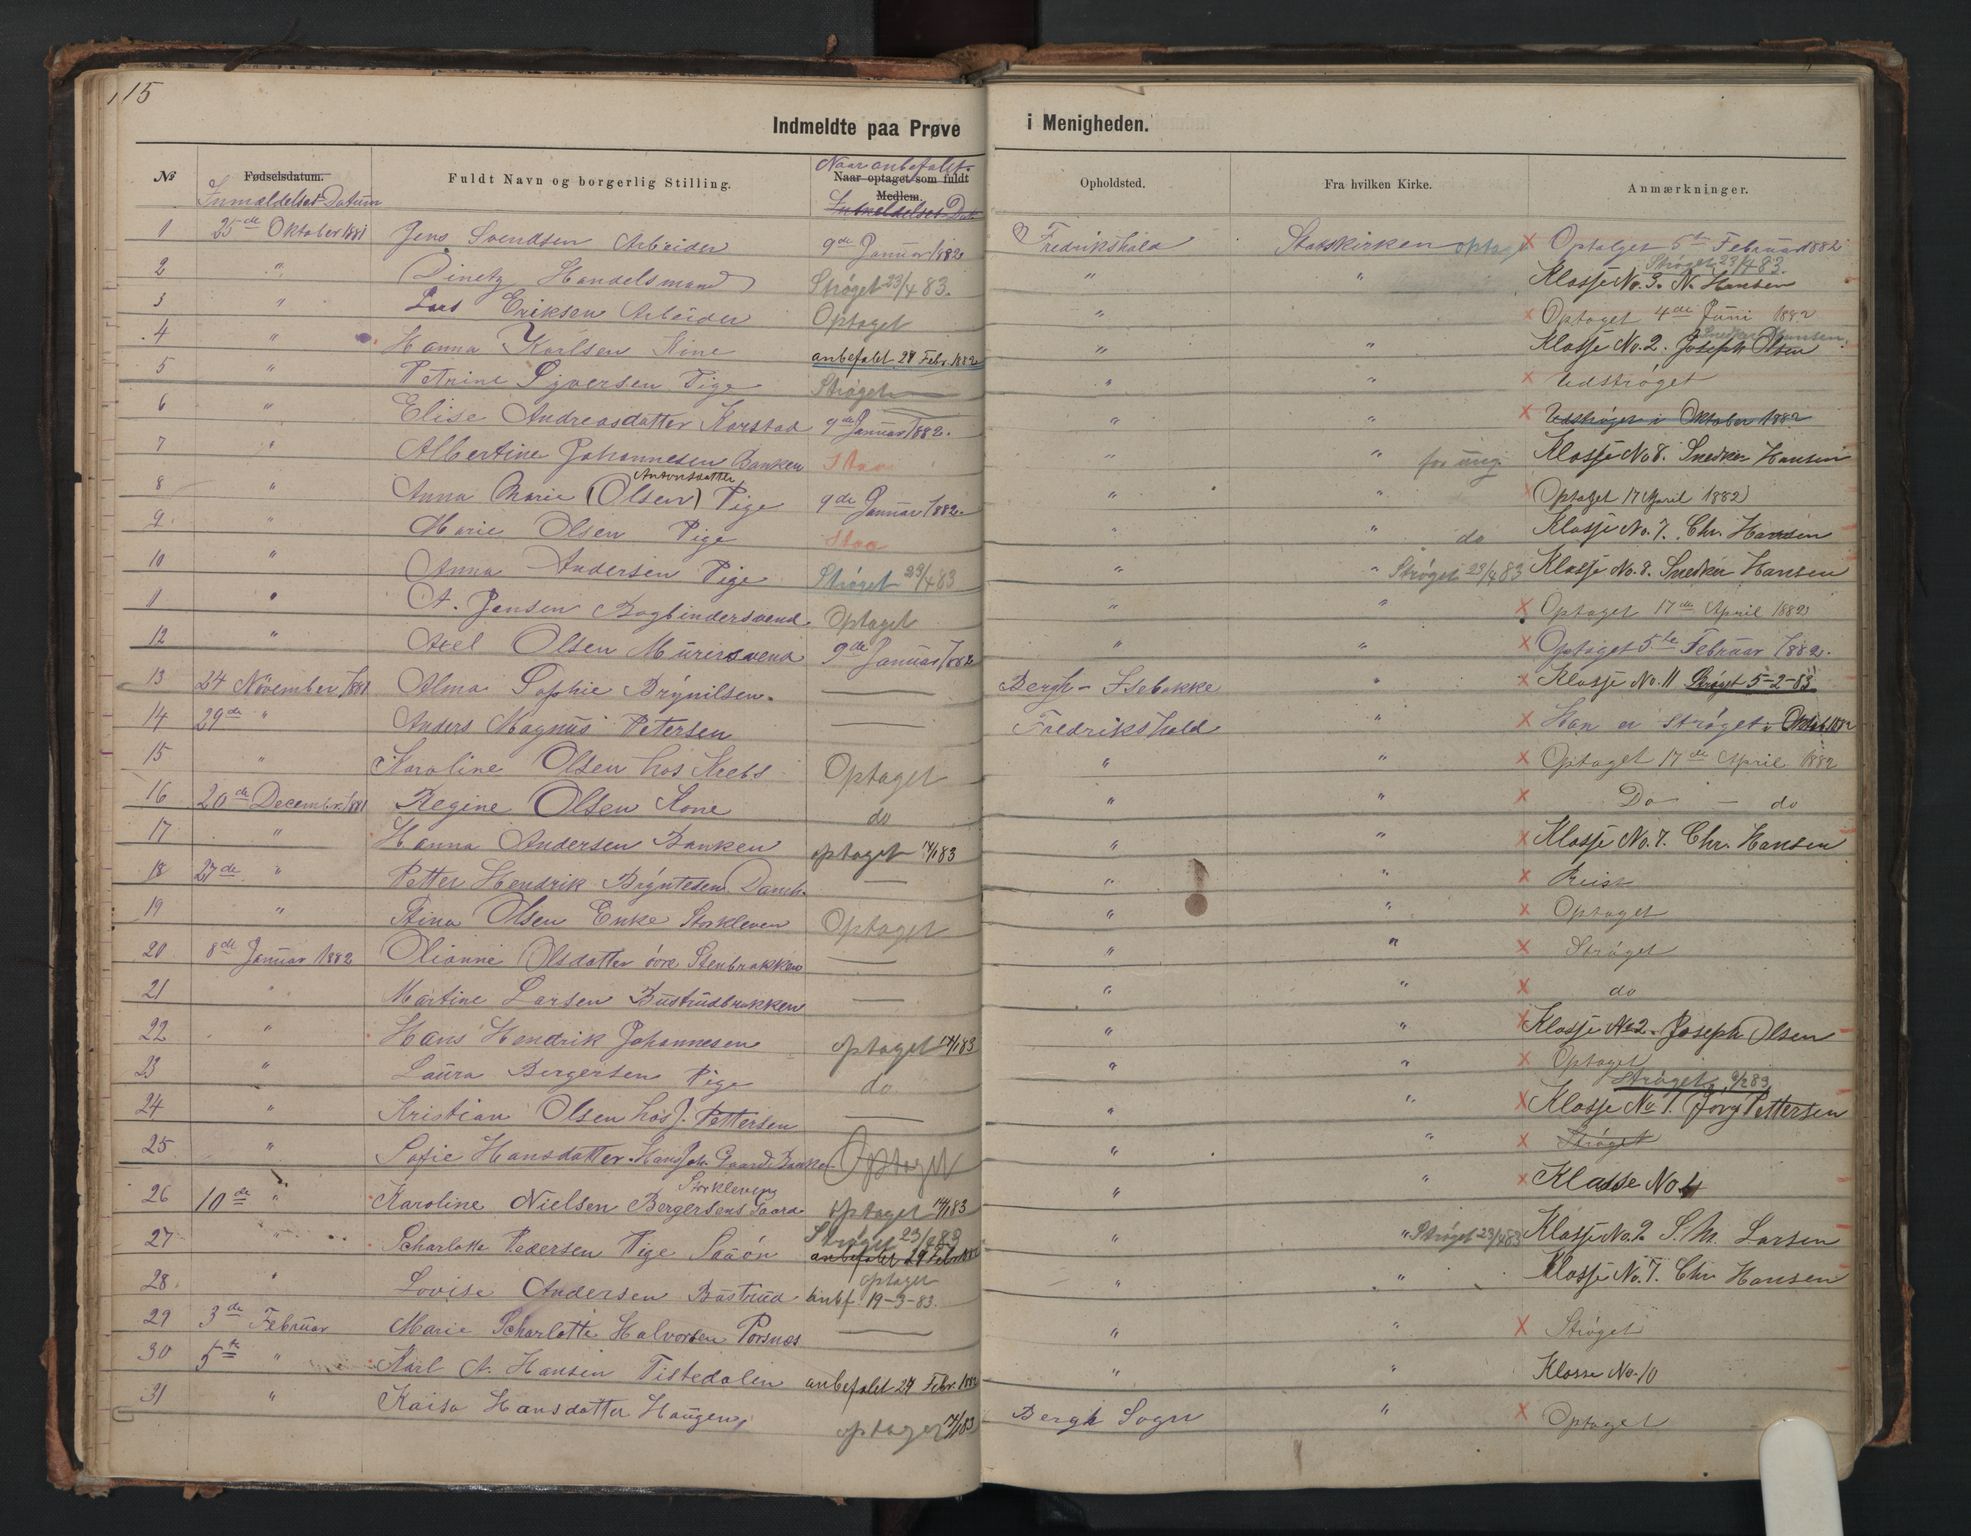 115
Indmeldte paa Prøve i Menigheden.
№ Fødselsdatum. Indmeldelses Datum Fuldt Navn og borgerlig Stilling. Naar anbefalet. Naar optaget som fuldt Medlem. Indmeldelses Dat Opholdsted. Fra hvilken Kirke. Anmærkninger.
1 25de Oktober 1881 Jens Svendsen Arbeider 9de Januar 1882 Fredrikshald Statskirken optaget × Optalget 5te Februar 1882
2 " Dinetz Handelsmand Strøget 23/4 83. " " Strøget 23/4 83. Klasse No. 3. N. Hansen
3 " Lars Eriksen Arbeider Optaget " " × Optaget 4de Juni 1882
4 " Hanna Karlsen Kone anbefalet 27 Febr. 1882 " " Klasse No. 2. Joseph Olsen
5 " Petrine Syversen Pige Strøget " " × Udstrøget
6 " Elise Andreasdatter Karstad 9de Januar 1882. " " × Udstrøget i Oktober 1882
7 " Albertine Johannesen Banken Staa " " for ung. Klasse No 8. Snedker Hansen
8 " Anna Marie (Olsen) Antonsdatter Pige 9de Januar 1882. " " Optaget 17 April 1882
9 " Marie Olsen Pige Staa " " do Klasse No. 7. Chr. Hansen
10 " Anna Andersen Pige Strøget 23/4 83 " " Strøget 23/4 83 Klasse No. 8. Snedker Hansen
11 " A. Jensen Bogbindersvend Optaget " " × Optaget 17de April 1882
12 " Axel Olsen Murersvend 9de Januar 1882 " " × Optaget 5te Februar 1882.
13 24 November 1881 Alma Sophie Brynilsen. — Bergh - Isebakke " × Klasse No. 11 Strøget 5-2-83
14 29de " Anders Magnus Petersen — Fredrikshald " × Han er strøget i Oktob. 1882
15 " Karoline Olsen hos Krebs Optaget " " × Optaget 17de April 1882
16 20de Decembr. 1881 Regine Olsen Kone do " " × Do — do
17 " Hanna Andersen Banken optaget 14/1 83 " " × Klasse No. 7. Chr. Hansen
18 27de " Petter Hendrik Bryntesen Danch. — " " × Reist
19 " Stina Olsen Enke Storkleven Optaget " " × Optaget
20 8de Januar 1882 Olianne Olsdatter övre Stenbrakken — " " × Strøget
21 " Martine Larsen Bustrudbrakken — " " × do
22 " Hans Hendrik Johannesen optaget 14/1 83 " " × Klasse No 2. Joseph Olsen
23 " Laura Bergersen Pige do " " × Optaget
24 " Kristian Olsen hos J. Pettersen — " " Strøget 6/2 83 × Klasse No 1. Jørg Pettersen
25 " Sofie Hansdatter. Hans Joh. Gaard Banken Optaget " " × Strøget
26 10de " Karoline Nielsen Bergersens Gaard Storkleven optaget 14/1 83 " " × Klasse No 4
27 " Scharlotte Pedersen Pige Sauön Strøget 23/4 83 anbefalet 27 Febr. 1882 " " Strøget 23/4 83 Klasse No. 2 S. M. Larsen
28 " Lovise Andersen Bustrud optaget anbf. 19-3-83. " " Klasse No. 7. Chr. Hansen
29 3de Februar Marie Scharlotte Halvorsen Porsnes — " " × Strøget
30 5te " Karl A. Hansen Tistedalen anbefalet 27 Febr. 1882 " " Klasse No. 10
31 " Kaisa Hansdatter Haugen optaget 14/1 83 Bergh Sogn " × Optaget